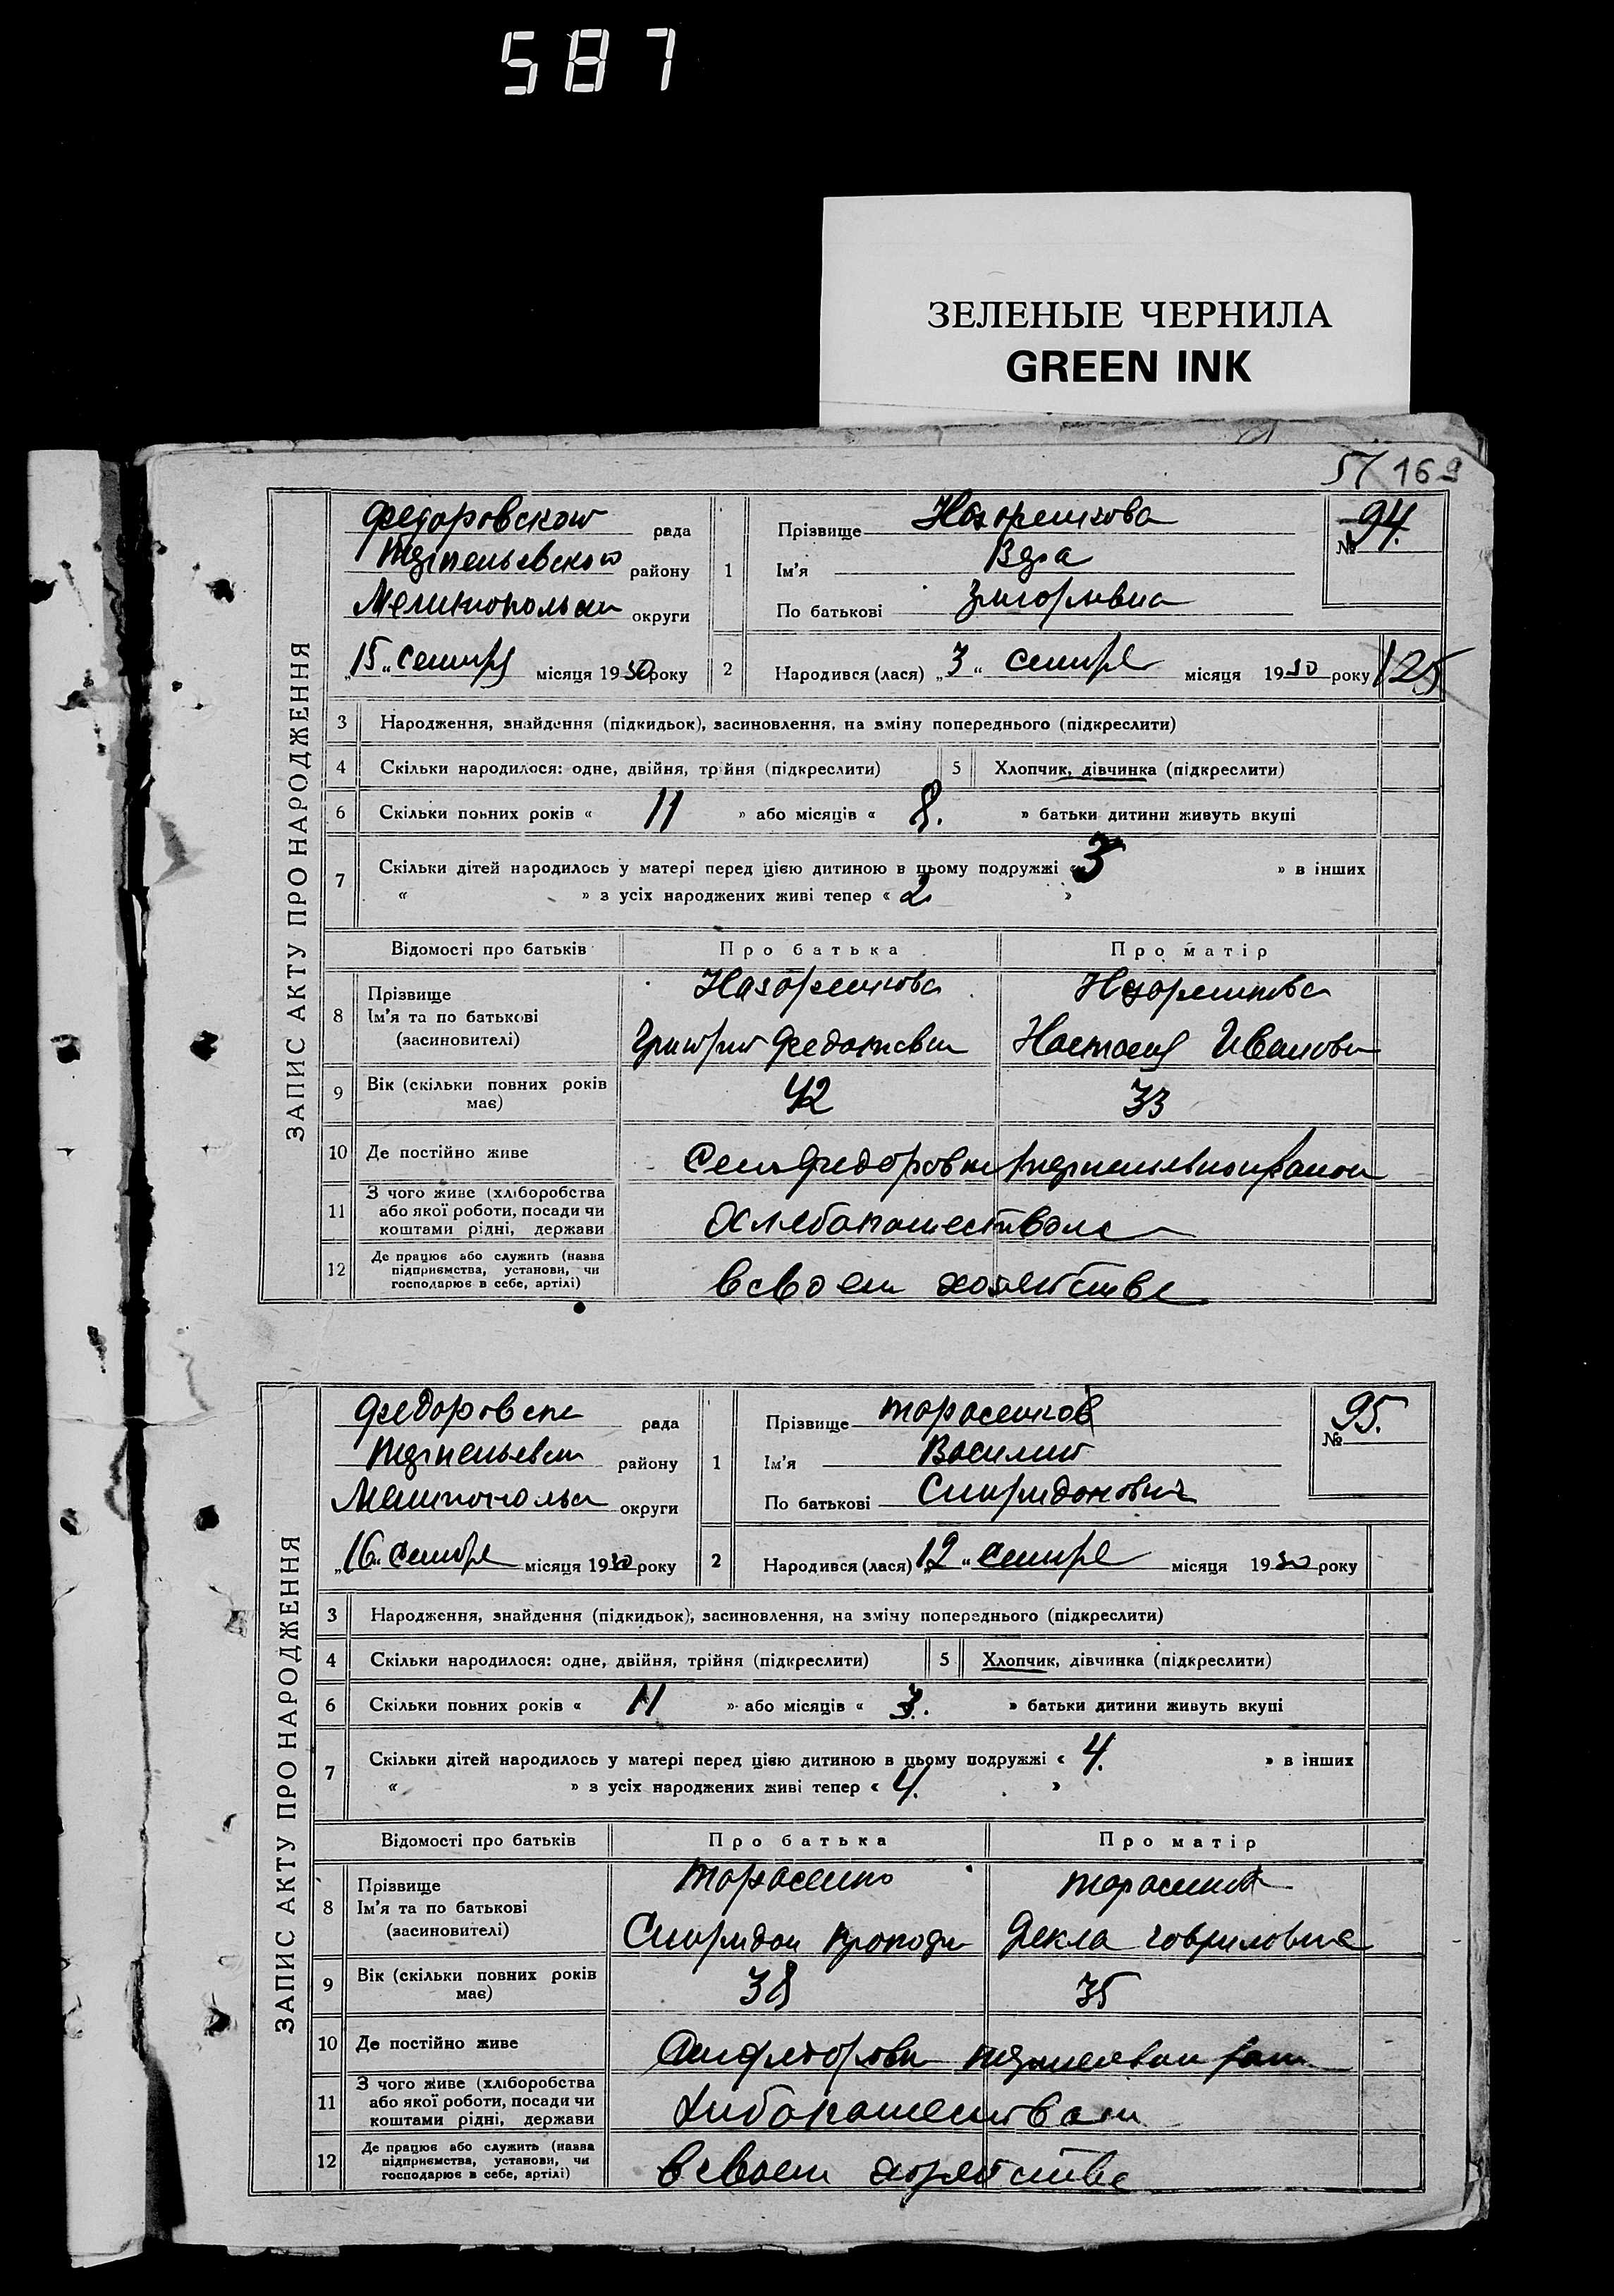 587
ЗЕЛЕНЫЕ ЧЕРНИЛА
GREEN INK
57 169
ЗАПИС АКТУ ПРО НАРОДЖЕННЯ
Федоровской рада
району
округи
„15“ сентяб місяця 1930 року
1
Прізвище
Ім'я Вера
По батькові Григорьевна
№ 94.
2 Народився (лася) „3“ сентября місяця 1930 року
125
3 Народження, знайдення (підкидьок), засиновлення, на зміну попереднього (підкреслити)
4 Скільки народилося: одне, двійня, трійня (підкреслити) 5 Хлопчик, дівчинка (підкреслити)
6 Скільки повних років « 11 » або місяців « 8. » батьки дитини живуть вкупі
7 Скільки дітей народилось у матері перед цією дитиною в цьому подружжі « 3 » в інших
« » з усіх народжених живі тепер « 2 »
Відомості про батьків Про батька Про матір
8 Прізвище
Ім'я та по батькові
(засиновителі) Настасия Иванови
9 Вік (скільки повних років має) 42 33
10 Де постійно живе
11 З чого живе (хліборобства або якої роботи, посади чи коштами рідні, держави Хлебопашеством
12 Де працює або служить (назва підприємства, установи, чи господарює в себе, артілі) в своем хозяйстве
ЗАПИС АКТУ ПРО НАРОДЖЕННЯ
рада
району
округи
„16“ сентябр місяця 1930 року
1
Прізвище Тарасенков
Ім'я Василий
По батькові Спиридонович
№ 95.
2 Народився (лася) „12“ сентября місяця 1930 року
3 Народження, знайдення (підкидьок), засиновлення, на зміну попереднього (підкреслити)
4 Скільки народилося: одне, двійня, трійня (підкреслити) 5 Хлопчик, дівчинка (підкреслити)
6 Скільки повних років « 11 » або місяців « 3. » батьки дитини живуть вкупі
7 Скільки дітей народилось у матері перед цією дитиною в цьому подружжі « 4. » в інших
« » з усіх народжених живі тепер « 4. »
Відомості про батьків Про батька Про матір
8 Прізвище Тарасенко
Ім'я та по батькові
(засиновителі) Спиридон Фекла Гавриловна
9 Вік (скільки повних років має) 38 35
10 Де постійно живе
11 З чого живе (хліборобства або якої роботи, посади чи коштами рідні, держави
12 Де працює або служить (назва підприємства, установи, чи господарює в себе, артілі) в своем хозяйстве